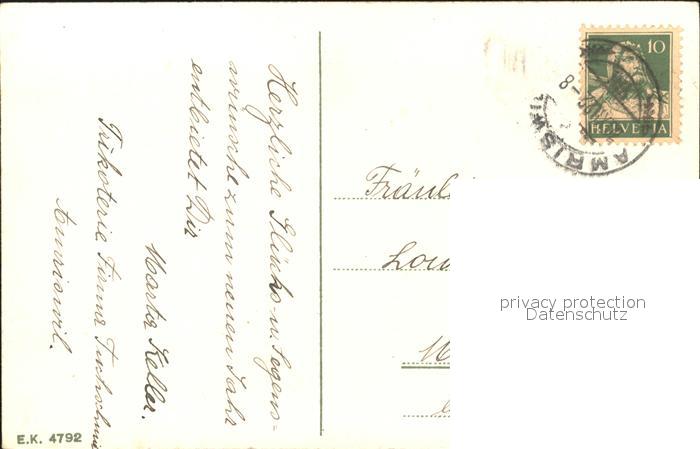 Herzliche Glücks- u. Segens-
wünsche zum neuen Jahr
entbietet Dir
Marta Keller.
Trikoterie Firma
Amriswil.
E.K. 4792
10
HELVETIA
AMRISW
Fräul
Lou
privacy protection
Datenschutz